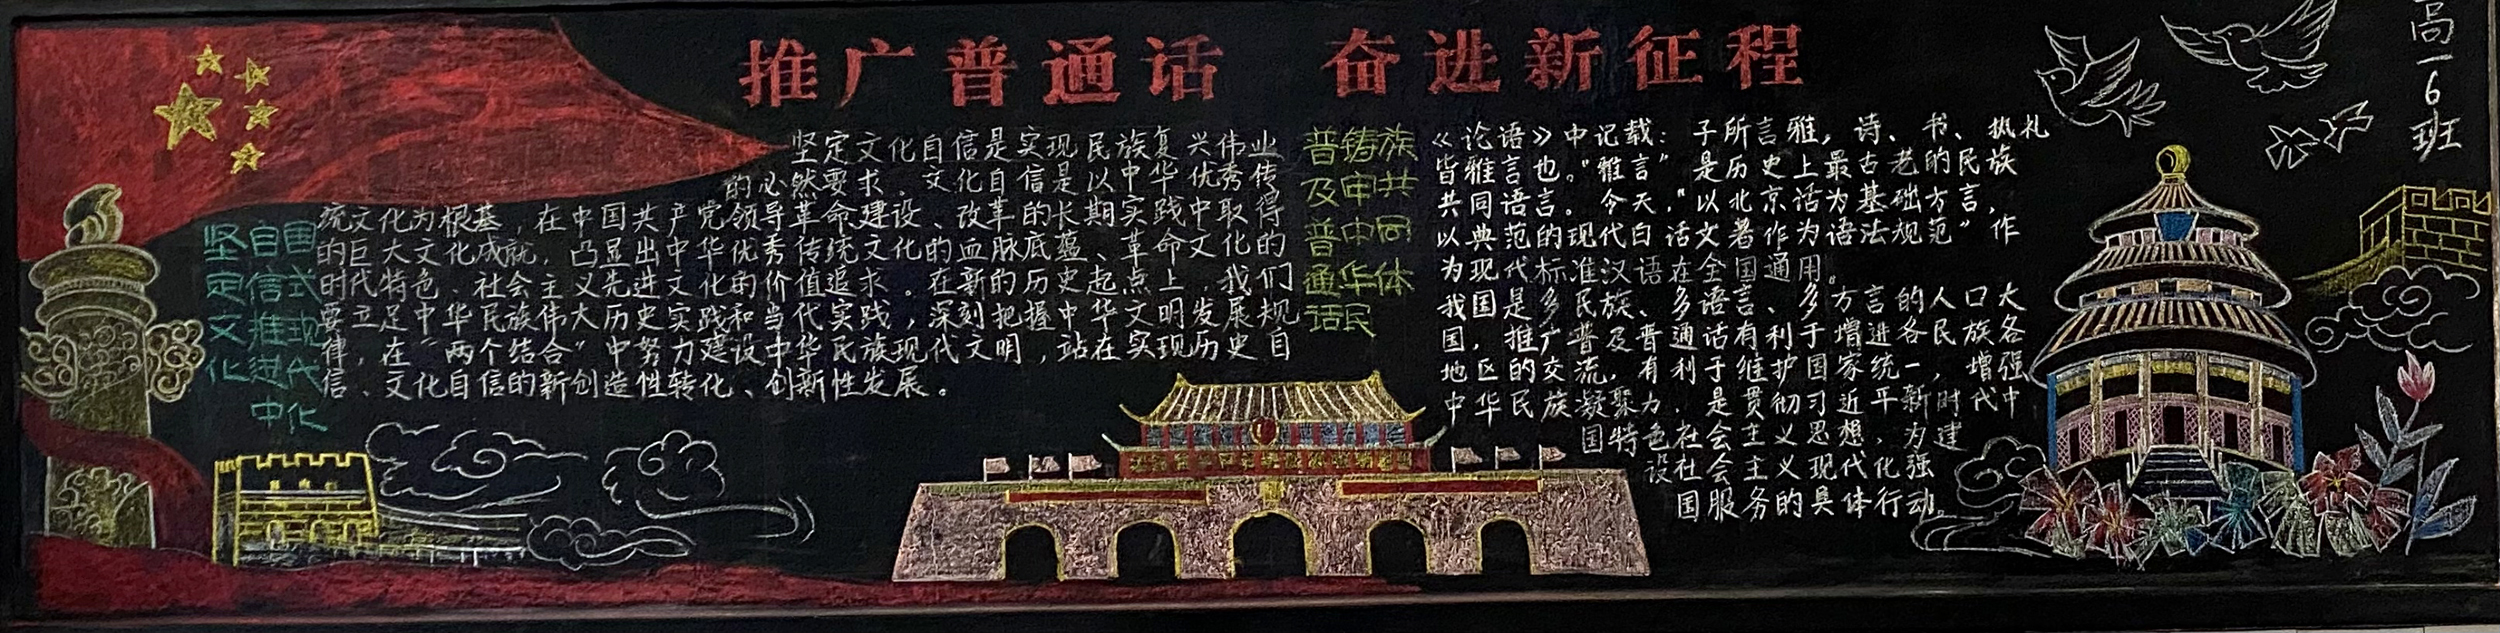 推广普通话 奋进新征程
高一6班
坚定文化
自信推进中
国式现代化
坚定文化自信是实现民族复兴伟业
的必然要求。文化自信是以中华优秀传
统文化为根基,在中国共产党领导革命建设、改革的长期实践中取得
的巨大文化成就,凸显出中华优秀传统文化的血脉底蕴、革命文化的
时代特色、社会主义先进文化的价值追求。在新的历史起点上,我们
要立足中华民族伟大历史实践和当代实践,深刻把握中华文明发展规
律,在“两个结合”中努力建设中华民族现代文明,站在实现历史自
信、文化自信的新创造性转化、创新性发展。
普及普通话
铸牢中华民
族共同体
《论语》中记载:子所言雅,诗、书、执礼
皆雅言也。“雅言”是历史上最古老的民族
共同语言。今天,“以北京话为基础方言,
以典范的现代白话文著作为语法规范”作
为现代标准汉语在全国通用。
我国是多民族、多语言、多方言的人口大
国,推广普及普通话有利于增进各民族各
地区的交流,有利于维护国家统一,增强
中华民族凝聚力,是贯彻习近平新时代中
国特色社会主义思想,为建
设社会主义现代化强
国服务的具体行动。